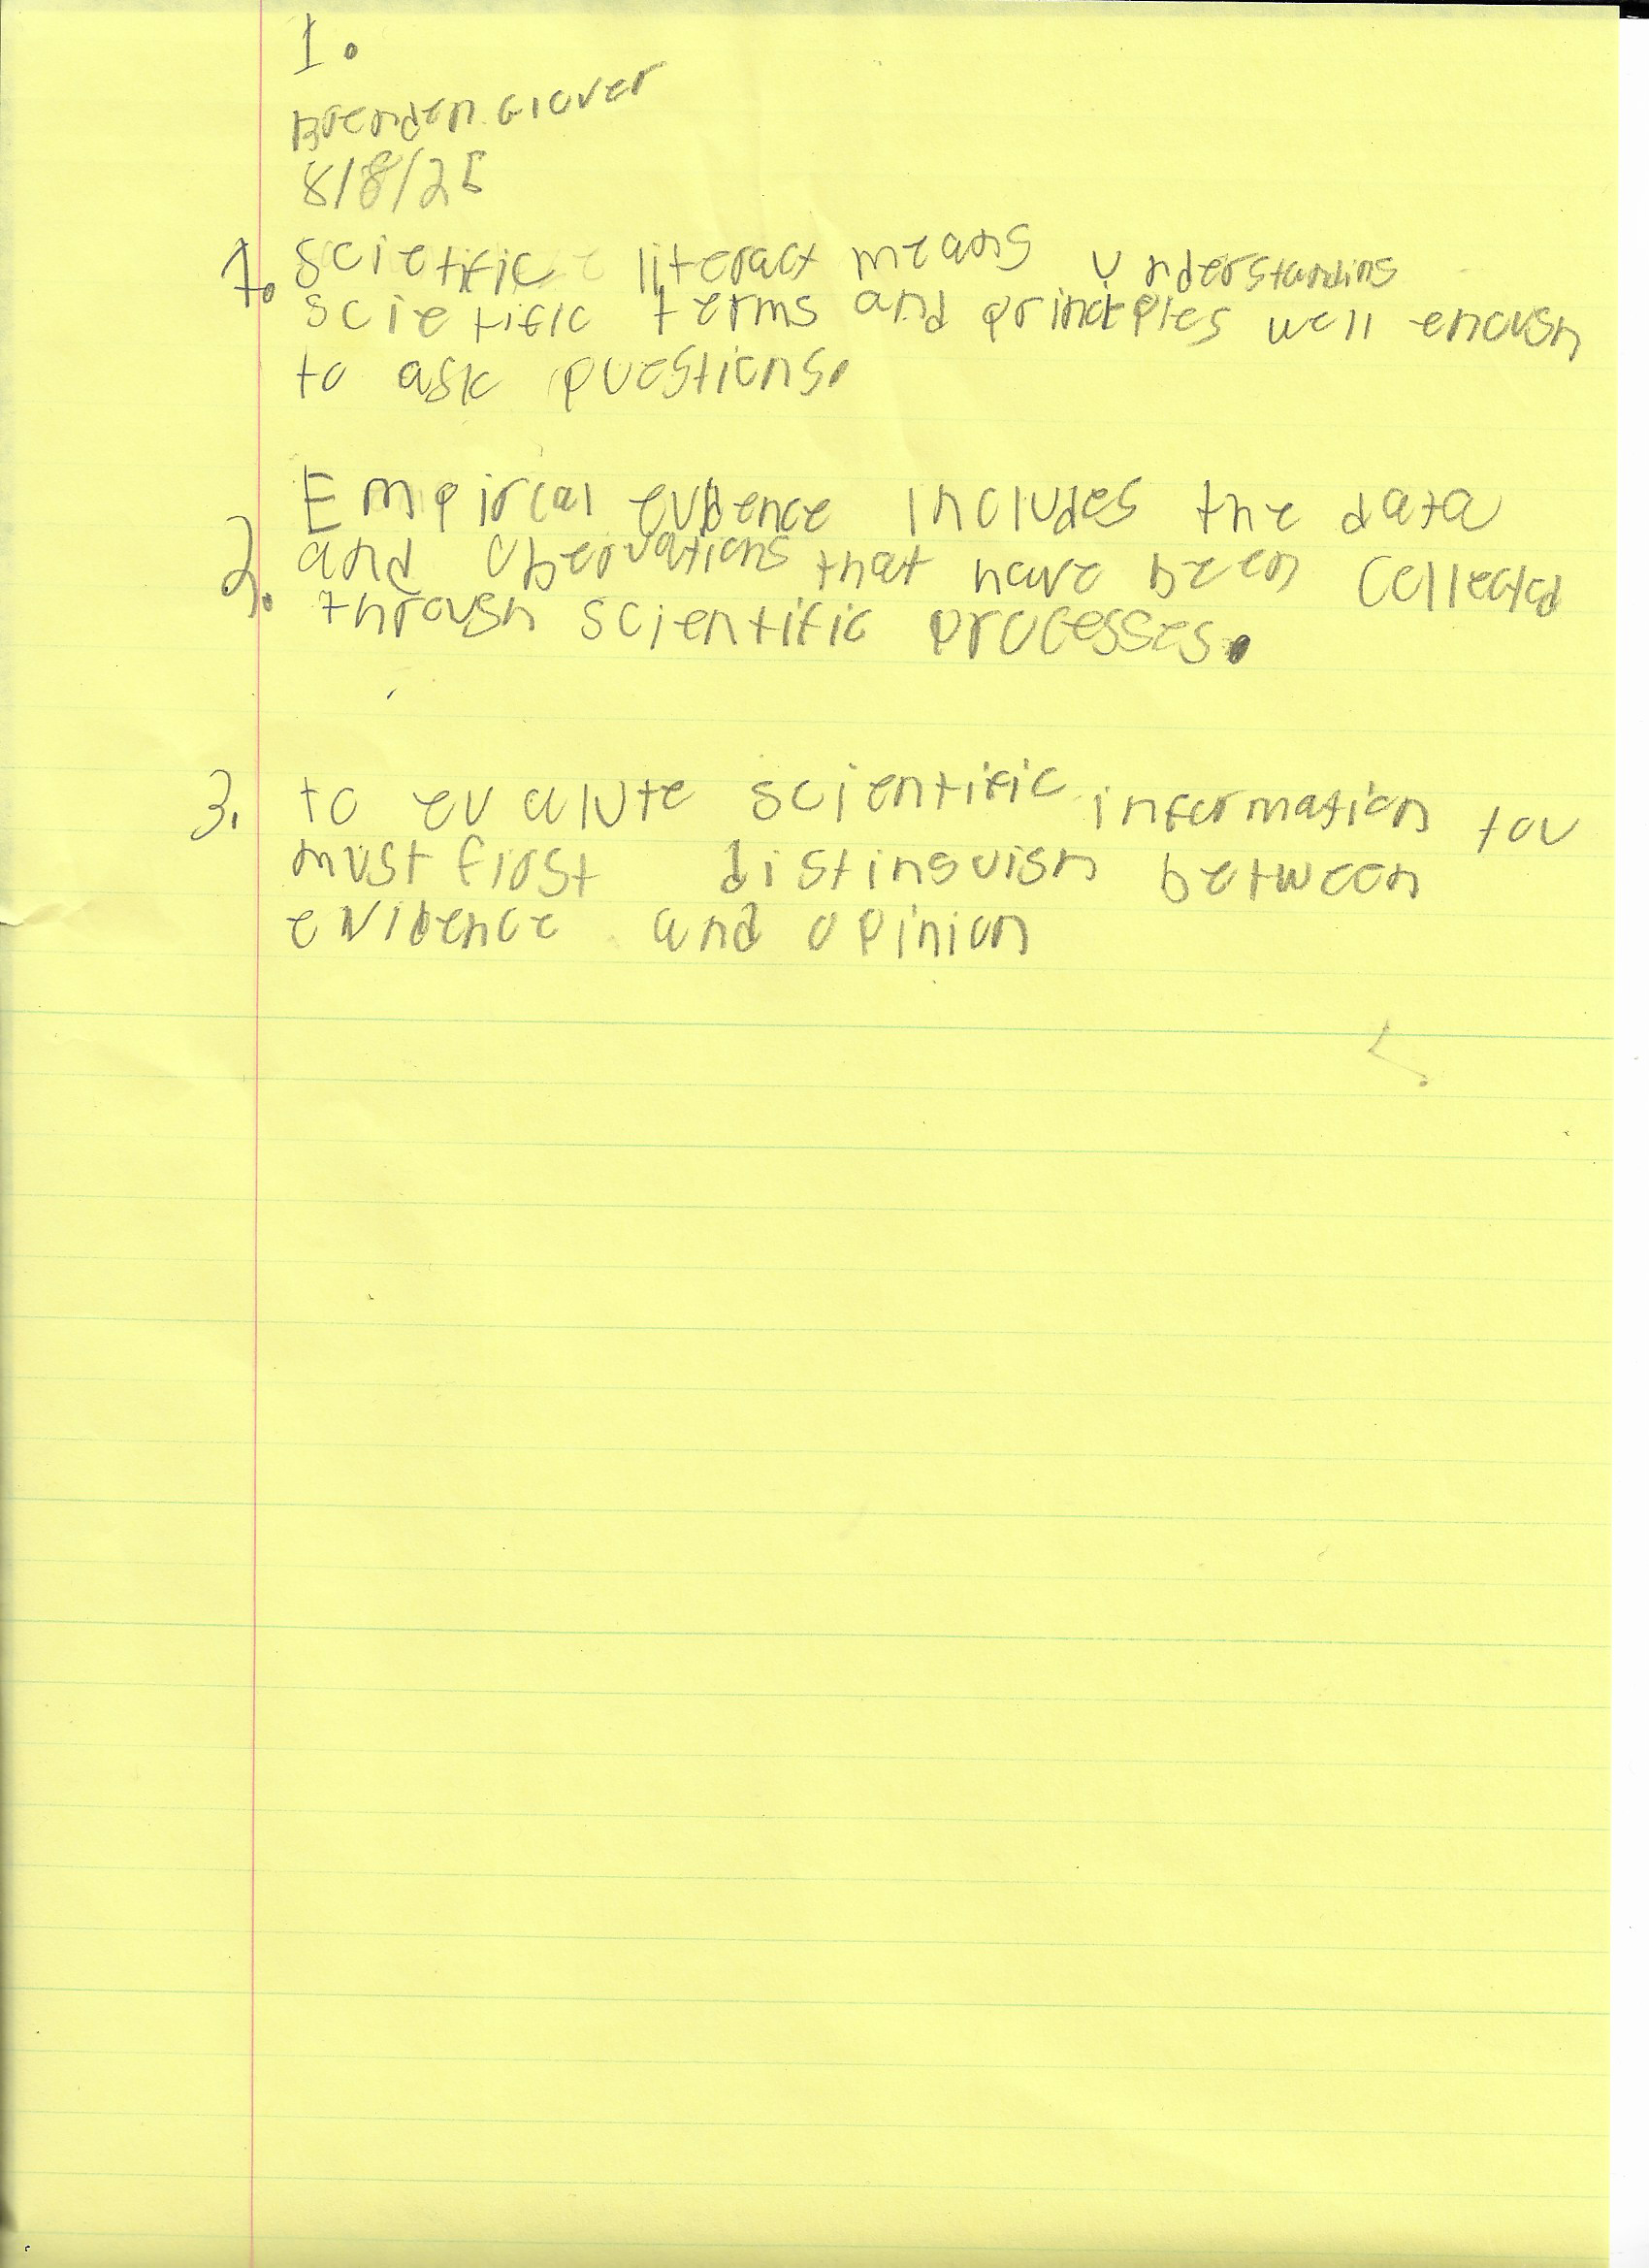 1.
Brenden Glover
8/8/25
1. scietific literact means understanding
scietific terms and principles well enough
to ask questions.
Empircal evidence includes the data
2. and obervations that have been collected
through scientific processes.
3. to evalute scientific information you
must first distinguish between
evidence and opinion